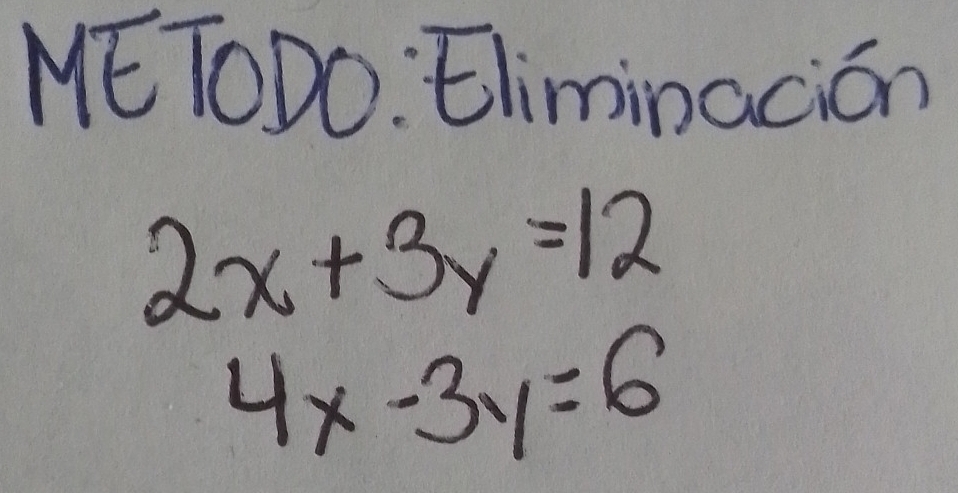 METODO: Eliminación
2x+3y=12
4x-3y=6